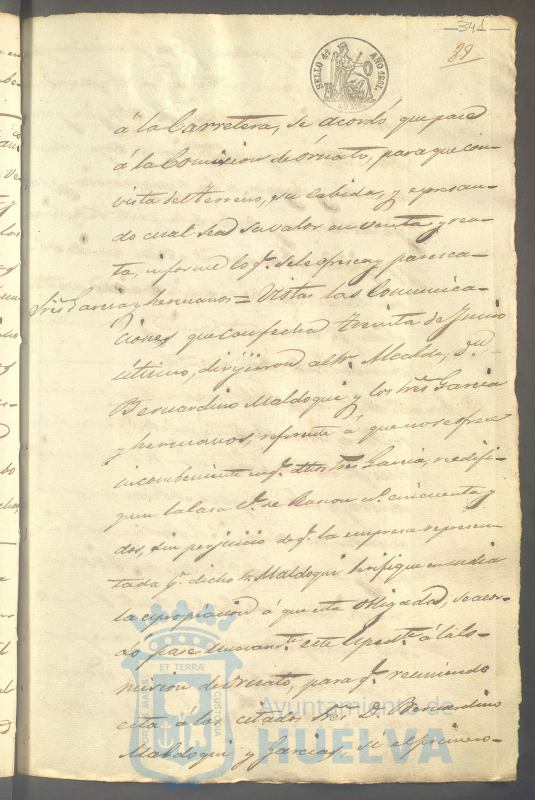 341
39
SELLO 4º AÑO 1861.
40 Mrs
á la Carretera, se acordó que pase
á la Comision de órnato, para que con
vista del terreno, su cabida, y expresan-
do cual sea su valor en venta y ren-
ta, informe lo qe. se le ofrezca y parezca
Sres. Garcia y hermanos = Vistas las Comunica-
ciones que con fecha treinta de Junio
último, dirijieron al Sr. Alcalde, Dn.
Bernardino Maldoqui y los Sres. Garcia
y hermanos, referente á que no se ofrece
incombeniente en qe. dhos Sres Garcia, reedifi-
quen la Casa Ce. de Rascon nº. cincuenta y
dos, sin perjuicio de qe. la empresa represen-
tada pr. dicho Sr. Maldoqui berifique en su dia
la expropiacion á que esta obligada, se acor-
do pase nuevamte. este Espedte. á la Co-
mision de Ornato, para qe. reuniendo
esta á los citados Sres D. Bernardino
Maldoqui y Garcias, si el primero
ET TERRÆ
PORTUS MARIS
CUSTODIA
Ayuntamiento de
HUELVA